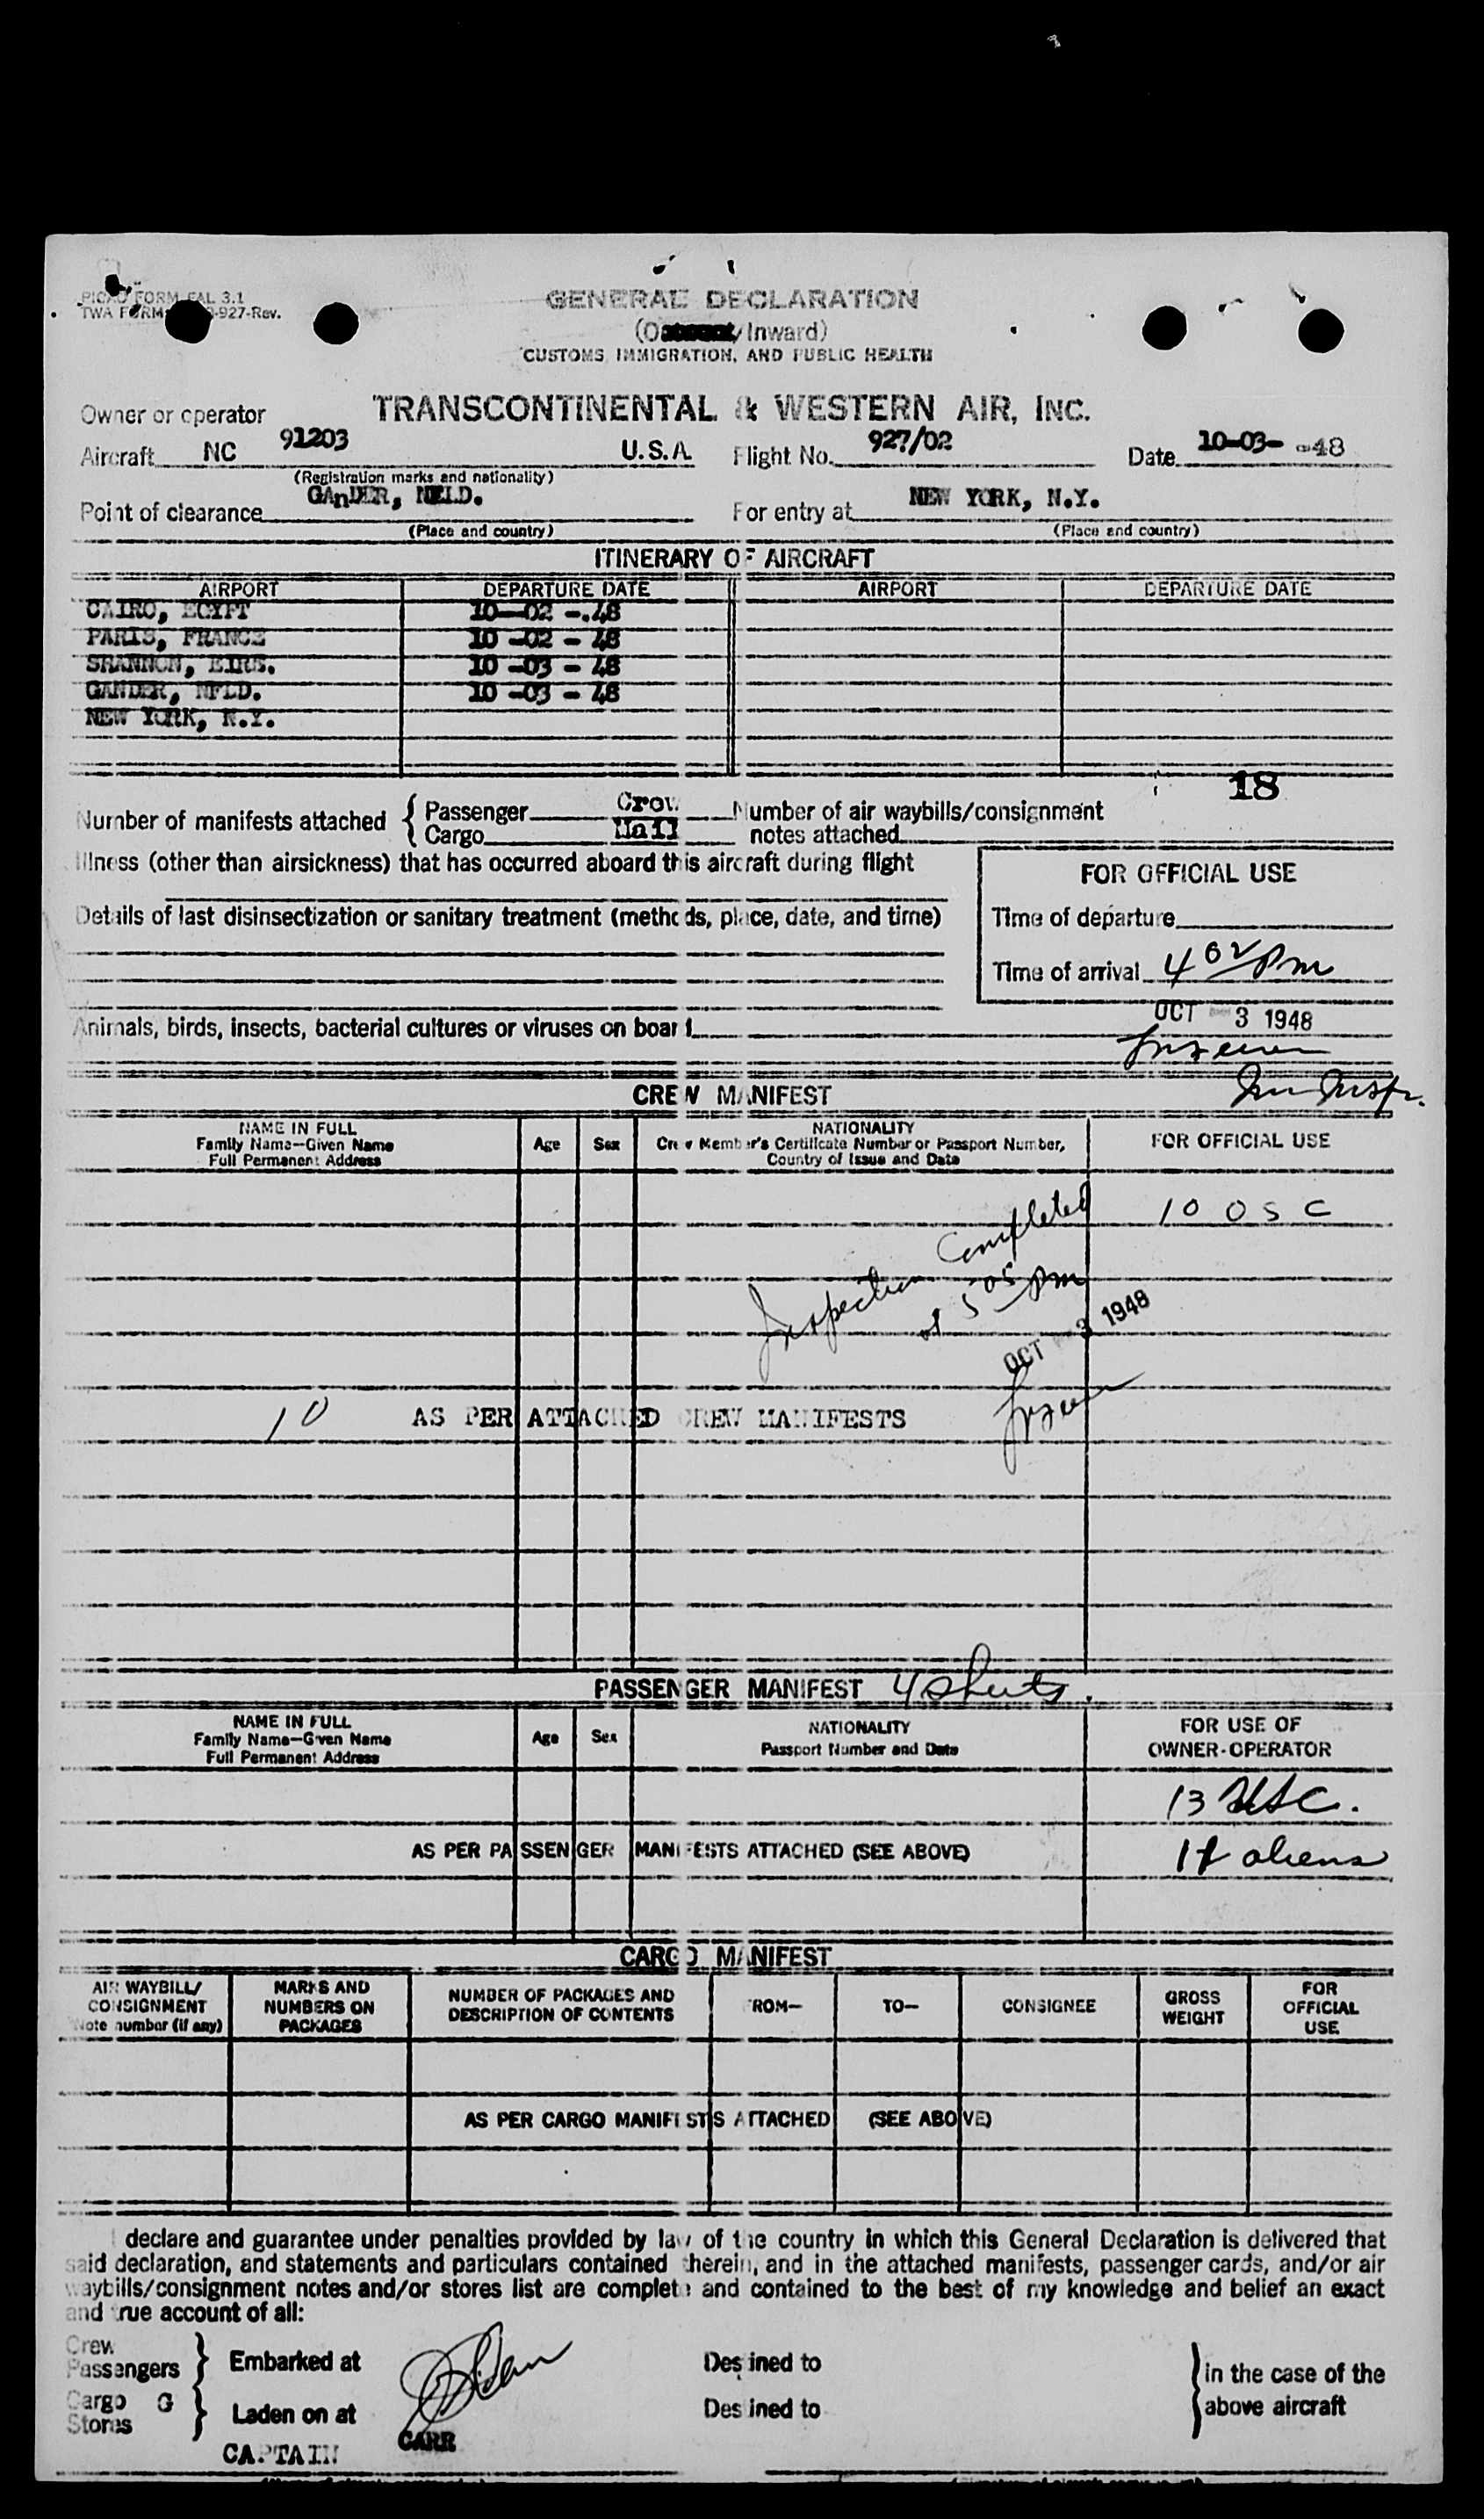 PICAO FORM FAL 3.1
TWA FORM -927-Rev.
GENERAL DECLARATION
(O / Inward)
CUSTOMS, IMMIGRATION, AND PUBLIC HEALTH
Owner or operator TRANSCONTINENTAL & WESTERN AIR, INC.
Aircraft NC 91203 U.S.A. Flight No. 927/02 Date 10-03- -48
(Registration marks and nationality)
Point of clearance GAnDER, NFLD. For entry at NEW YORK, N.Y.
(Place and country) (Place and country)
ITINERARY OF AIRCRAFT
AIRPORT DEPARTURE DATE AIRPORT DEPARTURE DATE
CAIRO, EGYPT 10-02 -.48
PARIS, FRANCE 10 -02 - 48
SHANNON, EIRE. 10 -03 - 48
GANDER, NFLD. 10 -03 - 48
NEW YORK, N.Y.
18
Number of manifests attached { Passenger Crew Number of air waybills/consignment
Cargo Mail notes attached
Illness (other than airsickness) that has occurred aboard this aircraft during flight
FOR OFFICIAL USE
Details of last disinsectization or sanitary treatment (methods, place, date, and time)
Time of departure
Time of arrival 4 02 Pm
OCT 3 1948
Animals, birds, insects, bacterial cultures or viruses on board
Imm Inspr.
CREW MANIFEST
NAME IN FULL
Family Name—Given Name
Full Permanent Address
Age Sex
NATIONALITY
Crew Member's Certificate Number or Passport Number,
Country of Issue and Date
FOR OFFICIAL USE
10 O S C
Inspection Completed
at 5 05 Pm
OCT 3 1948
10 AS PER ATTACHED CREW MANIFESTS
PASSENGER MANIFEST 4 sheets.
NAME IN FULL
Family Name—Given Name
Full Permanent Address
Age Sex
NATIONALITY
Passport Number and Date
FOR USE OF
OWNER-OPERATOR
13 USC.
AS PER PASSENGER MANIFESTS ATTACHED (SEE ABOVE)
aliens
CARGO MANIFEST
AIR WAYBILL/
CONSIGNMENT
Note number (if any)
MARKS AND
NUMBERS ON
PACKAGES
NUMBER OF PACKAGES AND
DESCRIPTION OF CONTENTS
FROM— TO— CONSIGNEE
GROSS
WEIGHT
FOR
OFFICIAL
USE
AS PER CARGO MANIFESTS ATTACHED (SEE ABOVE)
I declare and guarantee under penalties provided by law of the country in which this General Declaration is delivered that
said declaration, and statements and particulars contained therein, and in the attached manifests, passenger cards, and/or air
waybills/consignment notes and/or stores list are complete and contained to the best of my knowledge and belief an exact
and true account of all:
Crew
Passengers } Embarked at Destined to } in the case of the
Cargo G
Stores } Laden on at Destined to above aircraft
CAPTAIN CARR